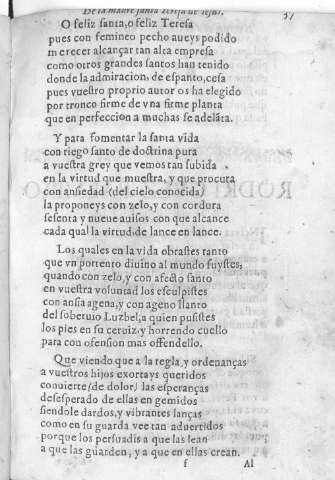 De la madre santa Teresa de Iesus. 37
O feliz santa, o feliz Teresa
pues con femineo pecho aueys podido
merecer alcançar tan alta empresa
como otros grandes santos han tenido
donde la admiracion, de espanto, cesa
pues vuestro proprio autor os ha elegido
por tronco firme de vna firme planta
que en perfeccion a muchas se adelãta.
Y para fomentar la santa vida
con riego santo de doctrina pura
a vuestra grey que vemos tan subida
en la virtud que muestra, y que procura
con ansiedad (del cielo conocida)
la proponeys con zelo, y con cordura
sesenta y nueue auisos con que alcance
cada qual la virtud, de lance en lance.
Los quales en la vida obrastes tanto
que vn portento diuino al mundo fuystes,
quando con zelo, y con afecto santo
en vuestra voluntad los esculpistes
con ansia agena, y con ageno llanto
del soberuio Luzbel, a quien pusistes
los pies en su ceruiz, y horrendo cuello
para con ofension mas offendello.
Que viendo que a la regla, y ordenanças
a vuestros hijos exortays queridos
conuierte (de dolor) las esperanças
desesperado de ellas en gemidos
siendole dardos, y vibrantes lanças
como en su guarda vee tan aduertidos
porque los persuadis a que las lean
a que las guarden, y a que en ellas crean.
f Al